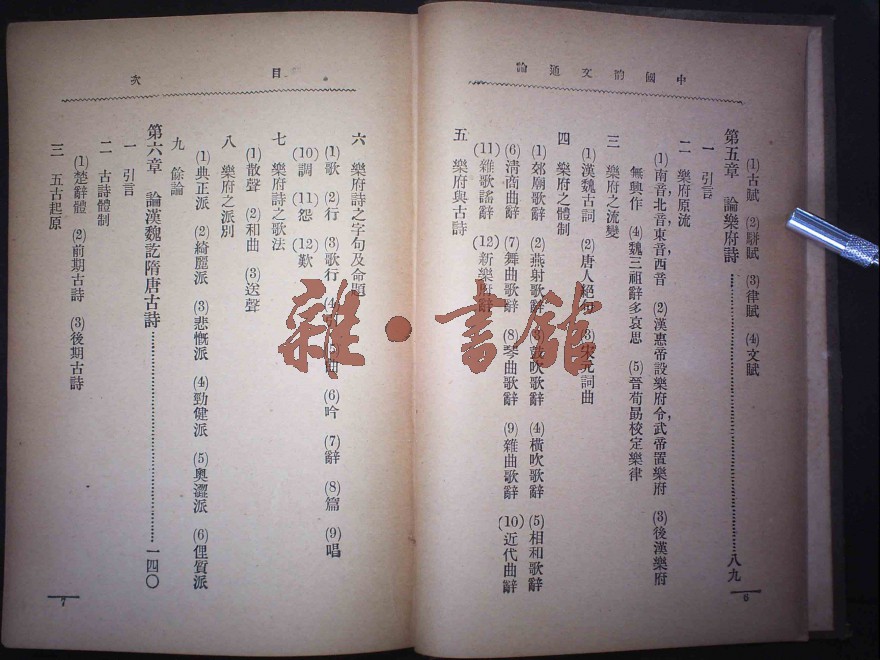 中國韵文通論
(1)古賦 (2)駢賦 (3)律賦 (4)文賦
第五章 論樂府詩……八九
一 引言
二 樂府原流
(1)南音,北音,東音,西音 (2)漢惠帝設樂府令,武帝置樂府 (3)後漢樂府
無興作 (4)魏三祖辭多哀思 (5)晉荀勗校定樂律
三 樂府之流變
(1)漢魏古詞 (2)唐人絕句 (3)宋元詞曲
四 樂府之體制
(1)郊廟歌辭 (2)燕射歌辭 (3)鼓吹歌辭 (4)橫吹歌辭 (5)相和歌辭
(6)清商曲辭 (7)舞曲歌辭 (8)琴曲歌辭 (9)雜曲歌辭 (10)近代曲辭
(11)雜歌謠辭 (12)新樂府辭
五 樂府與古詩
6
目次
六 樂府詩之字句及命題
(1)歌 (2)行 (3)歌行 (4) 曲 (6)吟 (7)辭 (8)篇 (9)唱
(10)調 (11)怨 (12)歎
七 樂府詩之歌法
(1)散聲 (2)和曲 (3)送聲
八 樂府之派別
(1)典正派 (2)綺麗派 (3)悲慨派 (4)勁健派 (5)奧澀派 (6)俚質派
九 餘論
第六章 論漢魏訖隋唐古詩……一四〇
一 引言
二 古詩體制
(1)楚辭體 (2)前期古詩 (3)後期古詩
三 五古起原
7
雜·書館